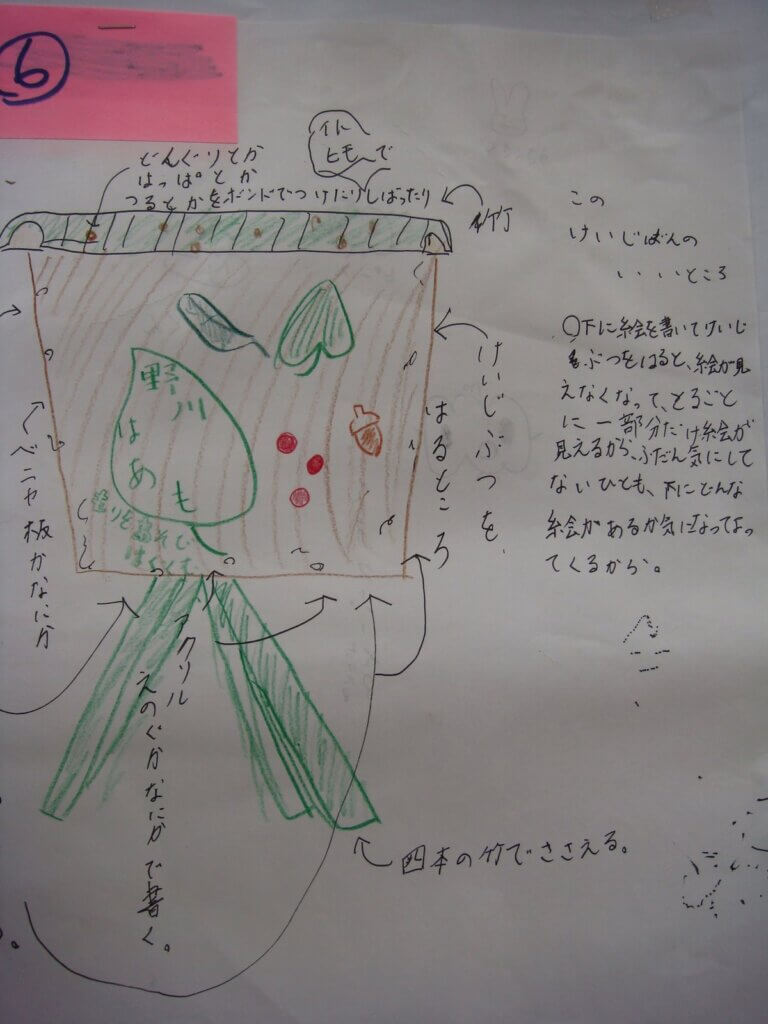 6
イト
ヒモで
どんぐりとか
はっぱとか
つるとかをボンドでつけたりしばったり
竹
この
けいじばんの
いいところ
○下に絵を書いてけいじ
ぶつをはると、絵が見
えなくなって、とるごと
に一部分だけ絵が
見えるから、ふだん気にして
ないひとも、下にどんな
絵があるか気になって
てくるから。
けいじぶつを、
はるところ
野川
はあも
ベニヤ板かなにか
アクリル
えのぐかなにかで書く。
四本の竹でささえる。